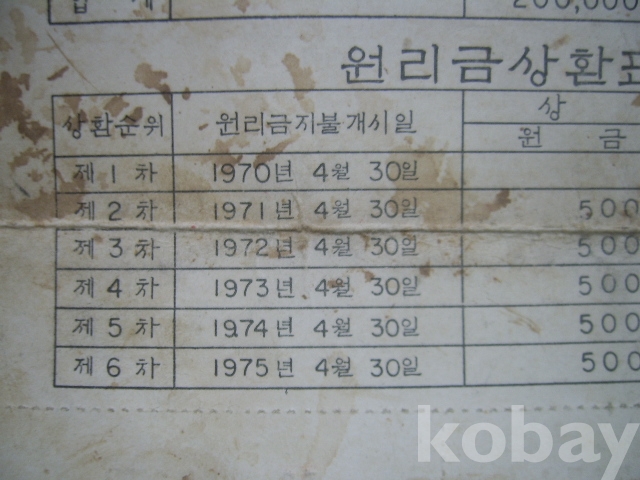 합 계 200,000
원리금상환표
상환순위 원리금지불개시일 상
원 금
제 1 차 1970년 4월 30일
제 2 차 1971년 4월 30일 500
제 3 차 1972년 4월 30일 500
제 4 차 1973년 4월 30일 500
제 5 차 1974년 4월 30일 500
제 6 차 1975년 4월 30일 500
kobay